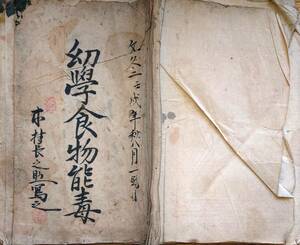 文久二壬戌年秋八月一到日
幼學食物能毒
木村長之助寫之